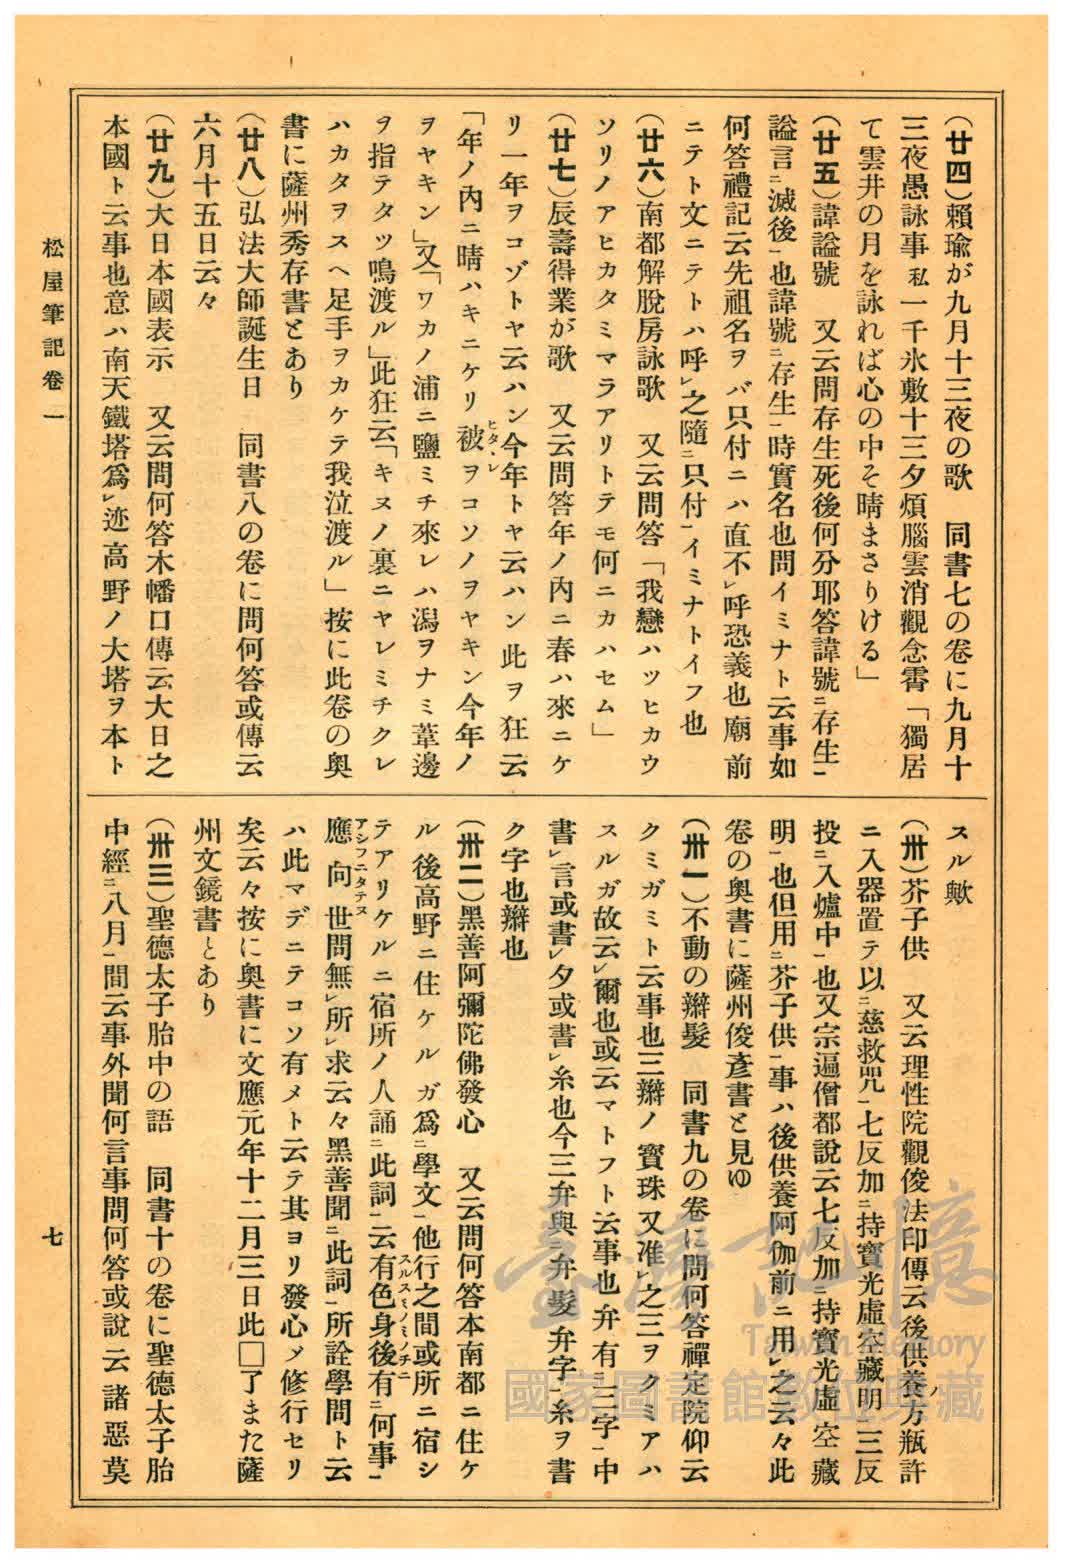 (廿四)賴瑜が九月十三夜の歌　同書七の卷に九月十
三夜愚詠事私一千氷敷十三夕煩腦雲消觀念霽「獨居
て雲井の月を詠れば心の中そ晴まさりける」
(廿五)諱謚號　又云問存生死後何分耶答諱號ニ存生一
謚言ニ滅後一也諱號ニ存生一時實名也問イミナト云事如
何答禮記云先祖名ヲバ只付ニハ直不レ呼恐義也廟前
ニテト文ニテトハ呼レ之隨ニ只付一イミナトイフ也
(廿六)南都解脫房詠歌　又云問答「我戀ハツヒカウ
ソリノアヒカタミマラアリトテモ何ニカハセム」
(廿七)辰壽得業が歌　又云問答年ノ內ニ春ハ來ニケ
リ一年ヲコゾトヤ云ハン今年トヤ云ハン此ヲ狂云
「年ノ內ニ晴ハキニケリ被ヒタヽレヲコソノヲヤキン今年ノ
ヲヤキン」又「ワカノ浦ニ鹽ミチ來レハ潟ヲナミ葦邊
ヲ指テタツ鳴渡ル」此狂云「キヌノ裏ニヤレミチクレ
ハカタヲスヘ足手ヲカケテ我泣渡ル」按に此卷の奧
書に薩州秀存書とあり
(廿八)弘法大師誕生日　同書八の卷に問何答或傳云
六月十五日云々
(廿九)大日本國表示　又云問何答木幡口傳云大日之
本國ト云事也意ハ南天鐵塔爲レ迹高野ノ大塔ヲ本ト
スル歟
(卅)芥子供　又云理性院觀俊法印傳云後供養方瓶許
ニ入器置テ以ニ慈救咒一七反加ニ持寶光虛空藏明一三反
投ニ入爐中一也又宗遍僧都說云七反加ニ持寶光虛空藏
明一也但用ニ芥子供一事ハ後供養阿伽前ニ用レ之云々此
卷の奧書に薩州俊彥書と見ゆ
(卅一)不動の辮髮　同書九の卷に問何答禪定院仰云
クミガミト云事也三辮ノ寶珠又准レ之三ヲクミアハ
スルガ故云レ爾也或云マトフト云事也弁有ニ三字一中
書レ言或書レ夕或書レ糸也今三弁與ニ弁髮弁字一糸ヲ書
ク字也辮也
(卅二)黑善阿彌陀佛發心　又云問何答本南都ニ住ケ
ル後高野ニ住ケルガ爲ニ學文一他行之間或所ニ宿シ
テアリケルニ宿所ノ人誦ニ此詞一云有色身後有スルスミノミノチニニ何事一
應向アシフニタテヌ世問無レ所レ求云々黑善聞ニ此詞一所詮學問ト云
ハ此マデニテコソ有メト云テ其ヨリ發心〆修行セリ
矣云々按に奧書に文應元年十二月三日此□了また薩
州文鏡書とあり
(卅三)聖德太子胎中の語　同書十の卷に聖德太子胎
中經ニ八月一間云事外聞何言事問何答或說云諸惡莫
松屋筆記卷一
七
臺灣記憶
Taiwan Memory
國家圖書館數位典藏